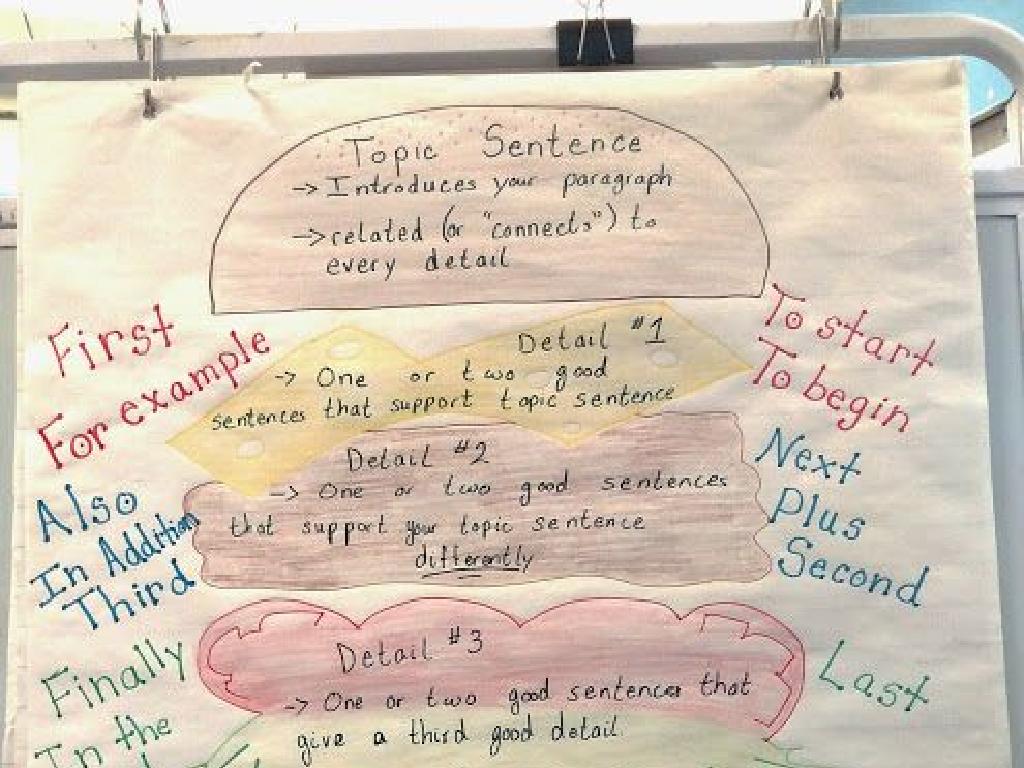 Topic Sentence
-> Introduces your paragraph
-> related (or "connects") to
every detail
First
For example
To start
To begin
Detail #1
-> One or two good
sentences that support topic sentence
Also
In Addition
Third
Next
Plus
Second
Detail #2
-> One or two good sentences
that support your topic sentence
differently
Finally
In the
Last
Detail #3
-> One or two good sentences that
give a third good detail.